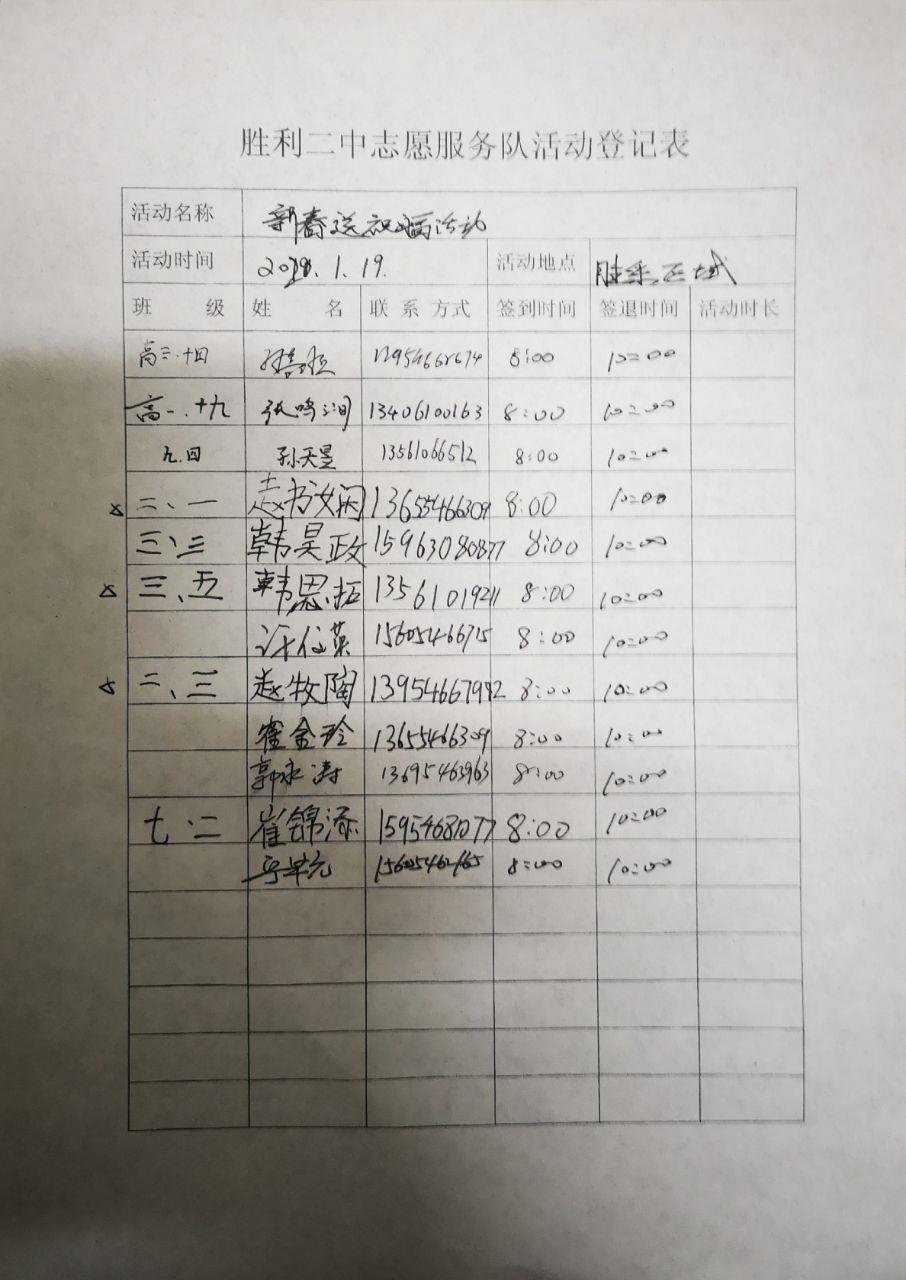 胜利二中志愿服务队活动登记表
活动名称 新春送祝福活动
活动时间 1.19. 活动地点 胜采区域
班 级 姓 名 联系方式 签到时间 签退时间 活动时长
高三.十四 8:00 10:00
高一.十九 张鸣润 13406100163 8:00 10:00
九.四 孙天昱 13561066512 8:00 10:00
二、一 13655466309 8:00 10:00
三、三 韩昊政 15963080877 8:00 10:00
三、五 韩思拓 13561019211 8:00 10:00
15605466715 8:00 10:00
二、三 赵牧陶 13954667992 8:00 10:00
霍金玲 13655466309 8:00 10:00
郭永涛 13695463963 8:00 10:00
七.二 崔锦添 15954681077 8:00 10:00
8:00 10:00